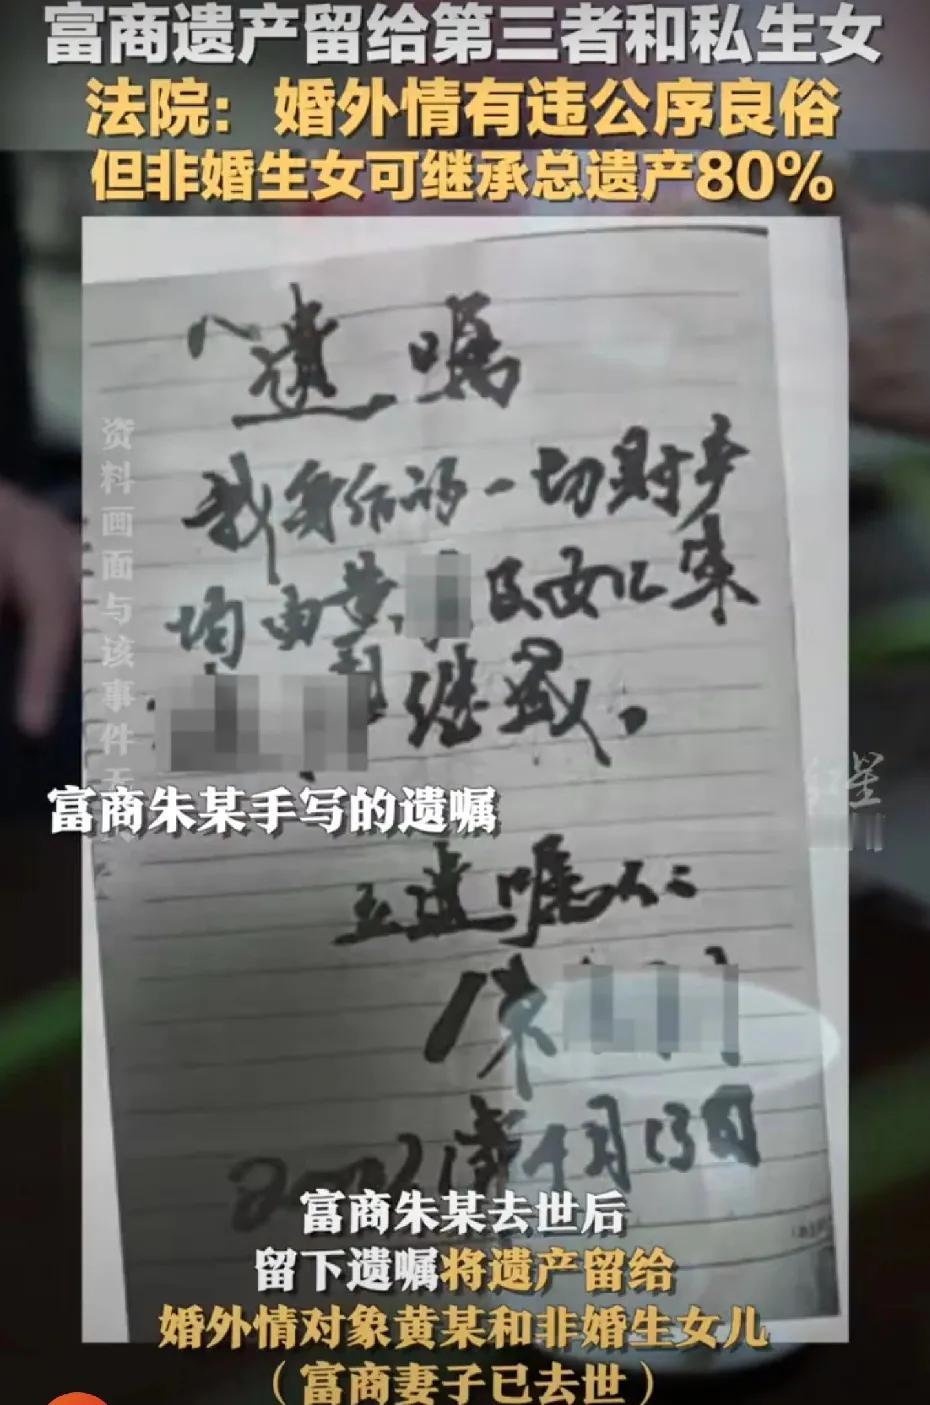 富商遗产留给第三者和私生女
法院：婚外情有违公序良俗
但非婚生女可继承总遗产80%
遗嘱
我身后的一切财产
均由黄 及女儿朱
继承。
资料画面与该事件无
富商朱某手写的遗嘱
立遗嘱人：
朱
月13日
富商朱某去世后
留下遗嘱将遗产留给
婚外情对象黄某和非婚生女儿
（富商妻子已去世）